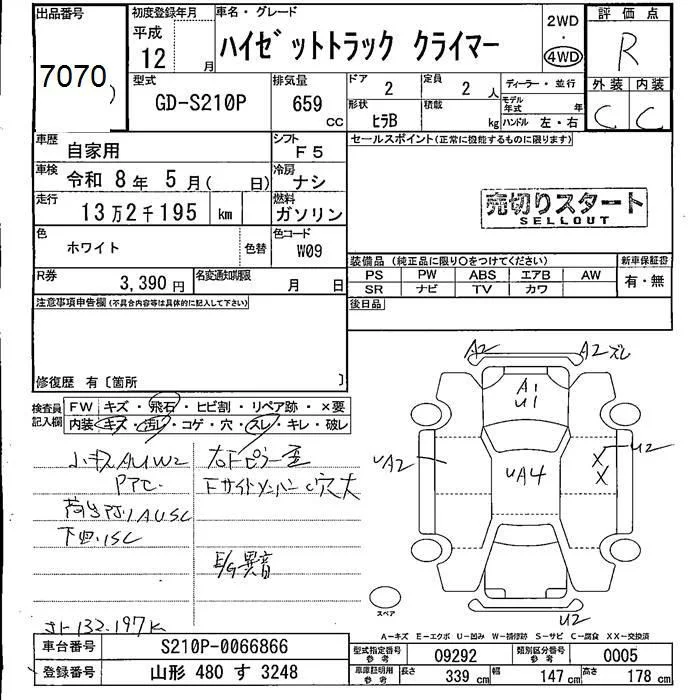 出品番号
7070
初度登録年月
平成
12 月
車名・グレード
ハイゼットトラック クライマー
2WD
・
4WD
評価点
R
型式
GD-S210P
排気量
659
CC
ドア
2
定員
2 人
形状
ヒラB
積載
kg
ディーラー・並行
モデル年式 年
ハンドル 左・右
外装 内装
C C
車歴
自家用
シフト
F5
車検
令和 8年 5月( 日)
冷房
ナシ
走行
13万2千195 km
燃料
ガソリン
色
ホワイト
色替
色コード
W09
R券
3,390 円
名変通知期限
月 日
セールスポイント(正常に機能するものに限ります)
売切りスタート
SELLOUT
装備品(純正品に限り○をつけてください)
PS PW ABS エアB AW
SR ナビ TV カワ
新車保証書
有・無
後日品
注意事項申告欄(不具合内容等は具体的に記入して下さい)
修復歴 有〔箇所 〕
検査員記入欄
FW キズ・飛石・ヒビ割・リペア跡・×要
内装 キズ・汚レ・コゲ・穴・スレ・キレ・破レ
小キズAUW2
右Fピラー歪
PTC.
FサイドメンバーC穴大
AUSC
下回ISC
E/G異音
132.197K
A2
A2ズレ
A1
U1
UA2
UA4
X
X
U2
U2
スペア
A-キズ E-エクボ U-凹み W-補修跡 S-サビ C-腐食 XX-交換済
車台番号
S210P-0066866
登録番号
山形 480 す 3248
型式指定番号
参考
09292
類別区分番号
参考
0005
車庫証明用
参考
長さ 339 cm
幅 147 cm
高さ 178 cm